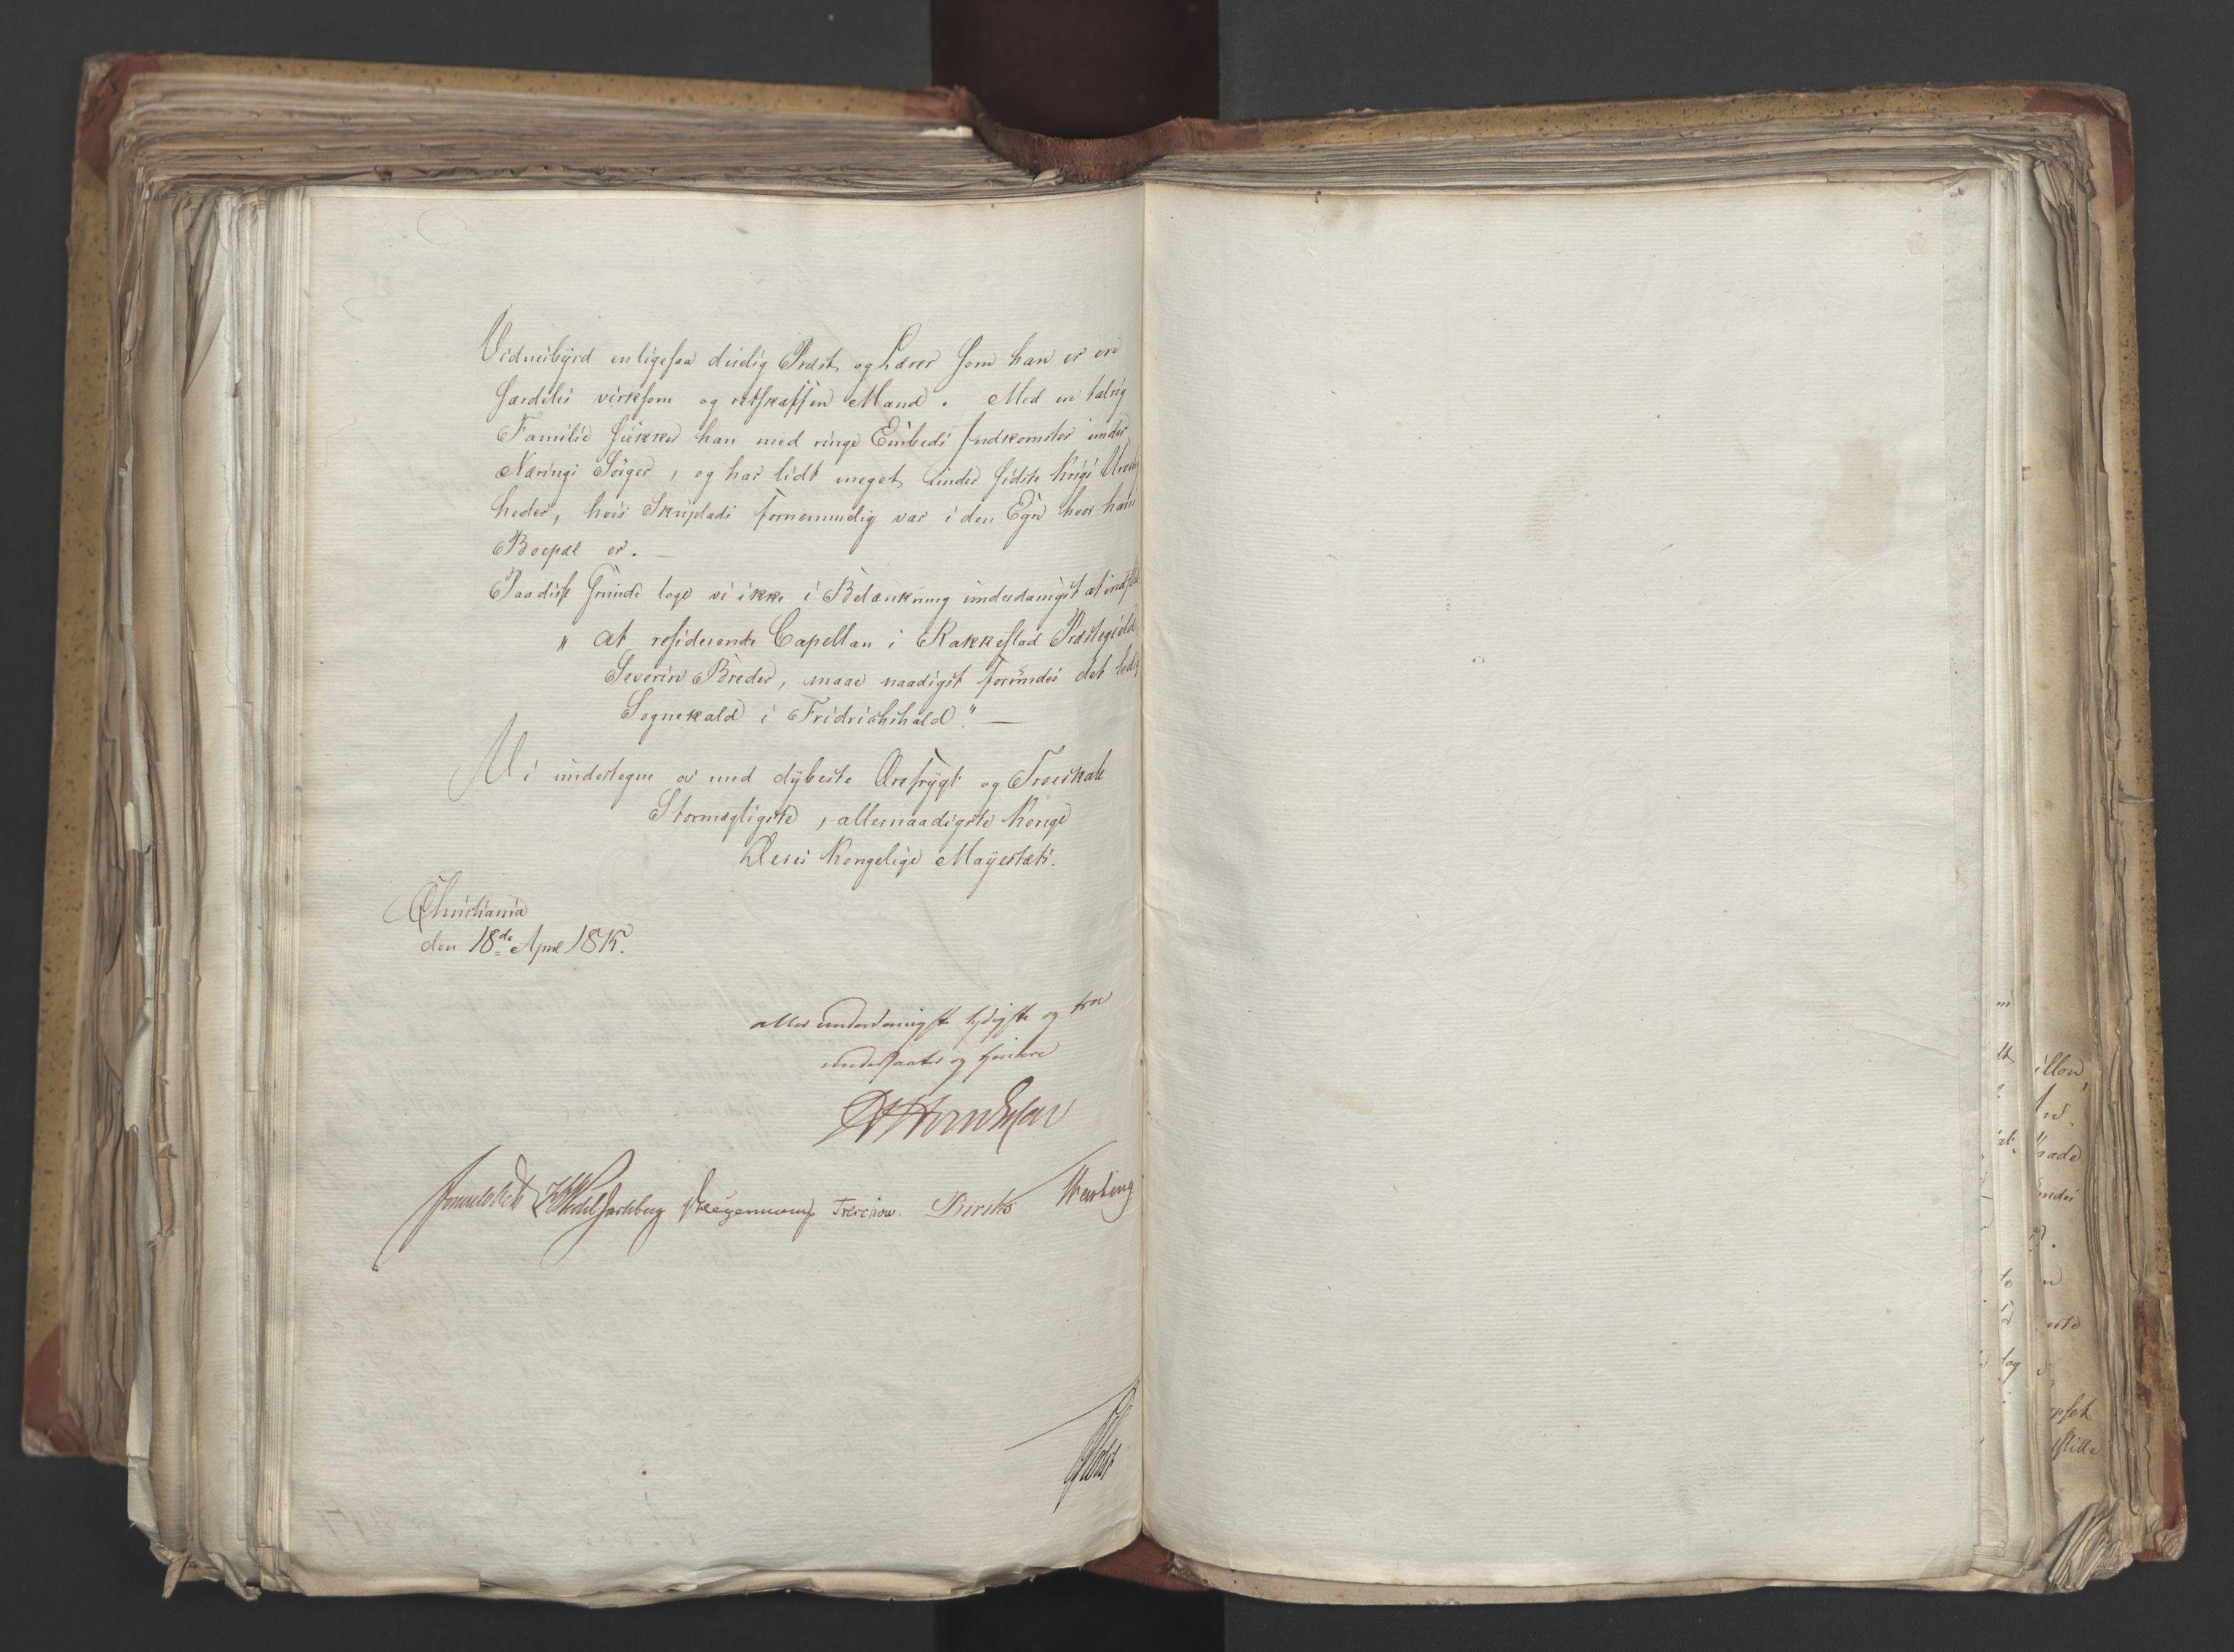 Vidnesbyrd en ligesaa duelig Præst og Lærer som han er en
særdeles virksom og retskaffen Mand. Med en talrig
Familie sukker han med ringe Embeds Indkomster under
Nærings Sorger, og har lidt meget under sidste Krigs
heder, hvis Skueplads fornemmelig var i den Egn hvor hans
Boepæl er. —
Paa disse Grunde tage vi ikke i Betænkning underdanigst at
„ at residerende Capellan i Rakkestad Præstegield,
Severin Breder, maae naadigst forundes det
Sognekald i Fridrichshald." —
Vi undertegne os med dybeste Ærefrygt og Troeskab
Stormægtigste, allernaadigste Konge
Deres Kongelige Mayestæts.
Christiania
den 18de April 1815.
aller underdanigste lydigste og troe
undersaatter og tienere
Sommerhielm Wedel Jarlsberg Krogh Treschow. Diriks Hartvig